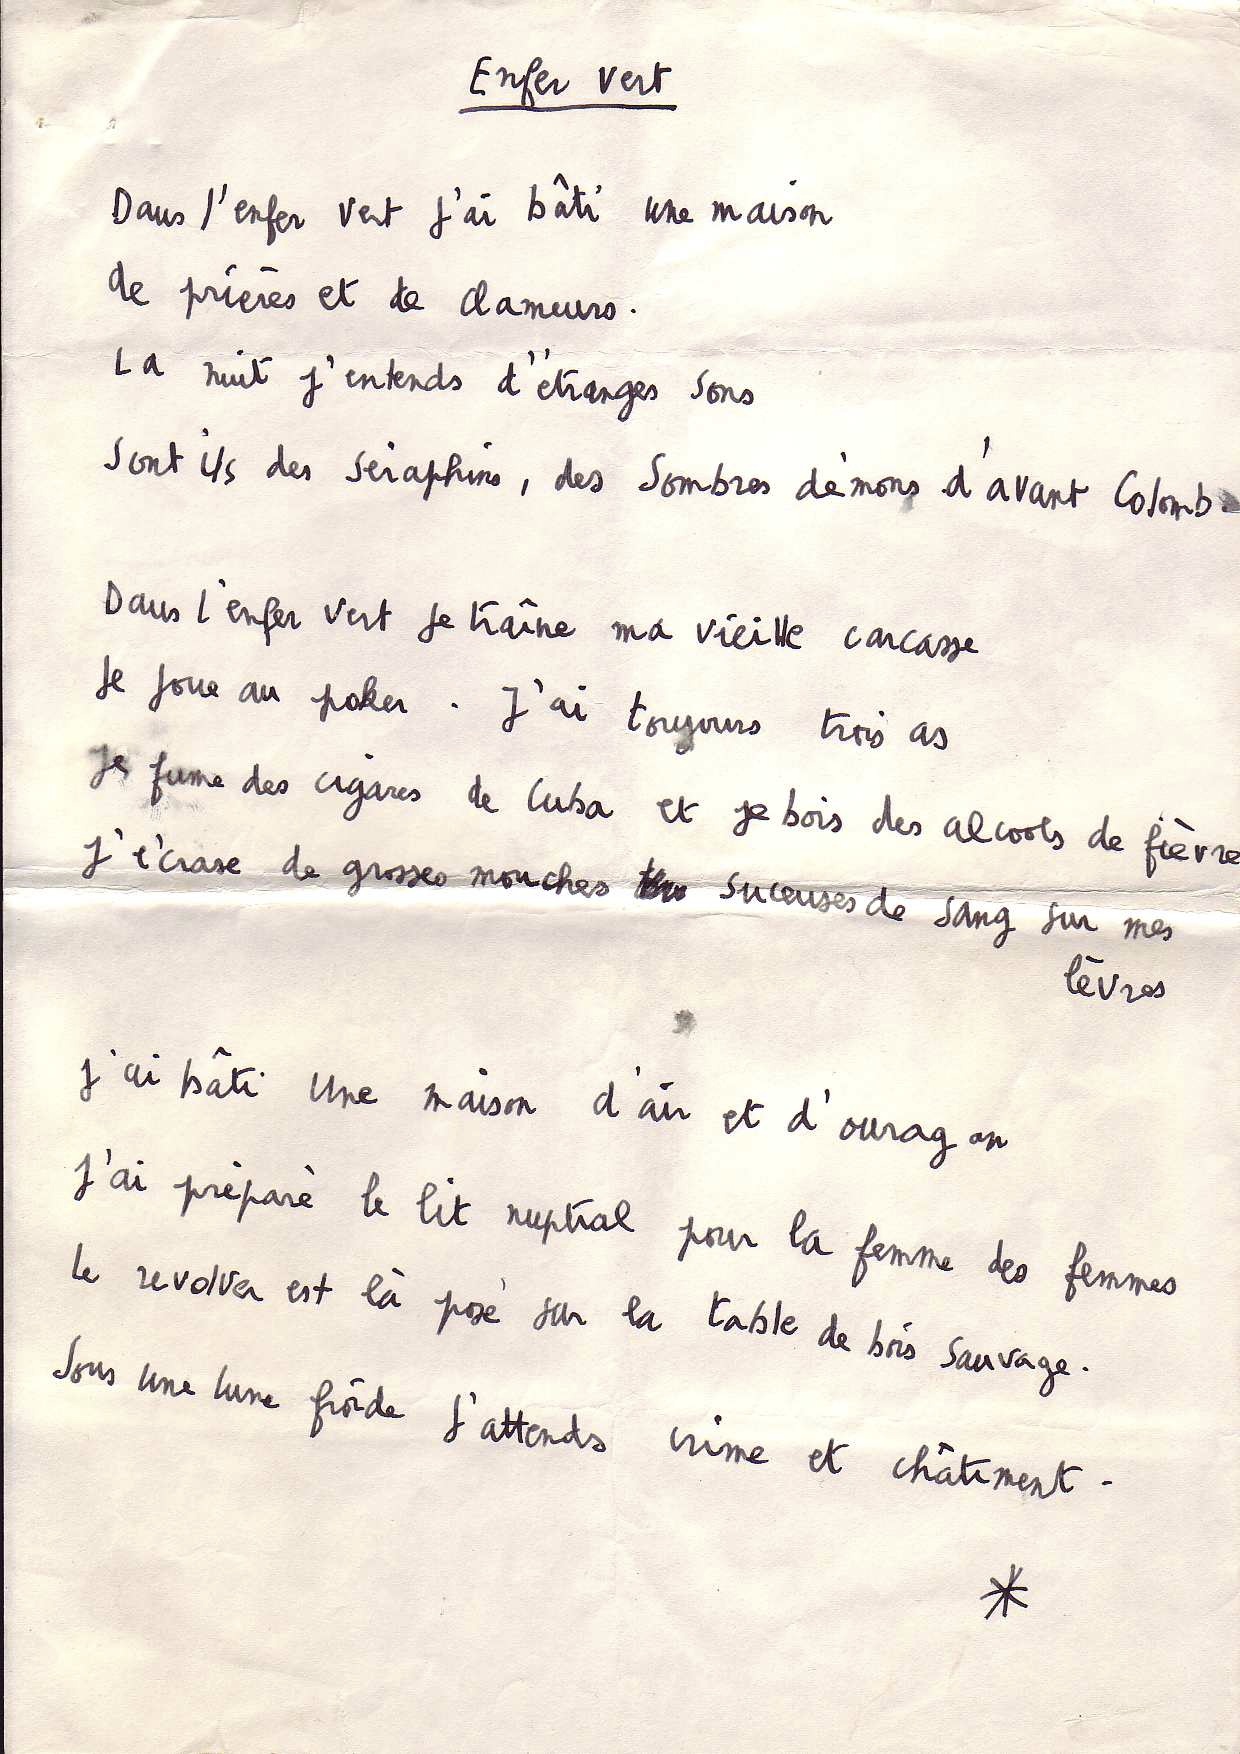 Enfer vert
Dans l'enfer vert j'ai bâti une maison
de prières et de clameurs.
La nuit j'entends d'étranges sons
Sont ils des séraphins, des sombres démons d'avant Colomb.
Dans l'enfer vert je traîne ma vieille carcasse
Je joue au poker. J'ai toujours trois as
Je fume des cigares de Cuba et je bois des alcools de fièvre
J'écrase de grosses mouches suceuses de sang sur mes
lèvres
J'ai bâti une maison d'air et d'ouragan
J'ai préparé le lit nuptial pour la femme des femmes
Le revolver est là posé sur la table de bois sauvage.
Sous une lune froide j'attends crime et châtiment.
*